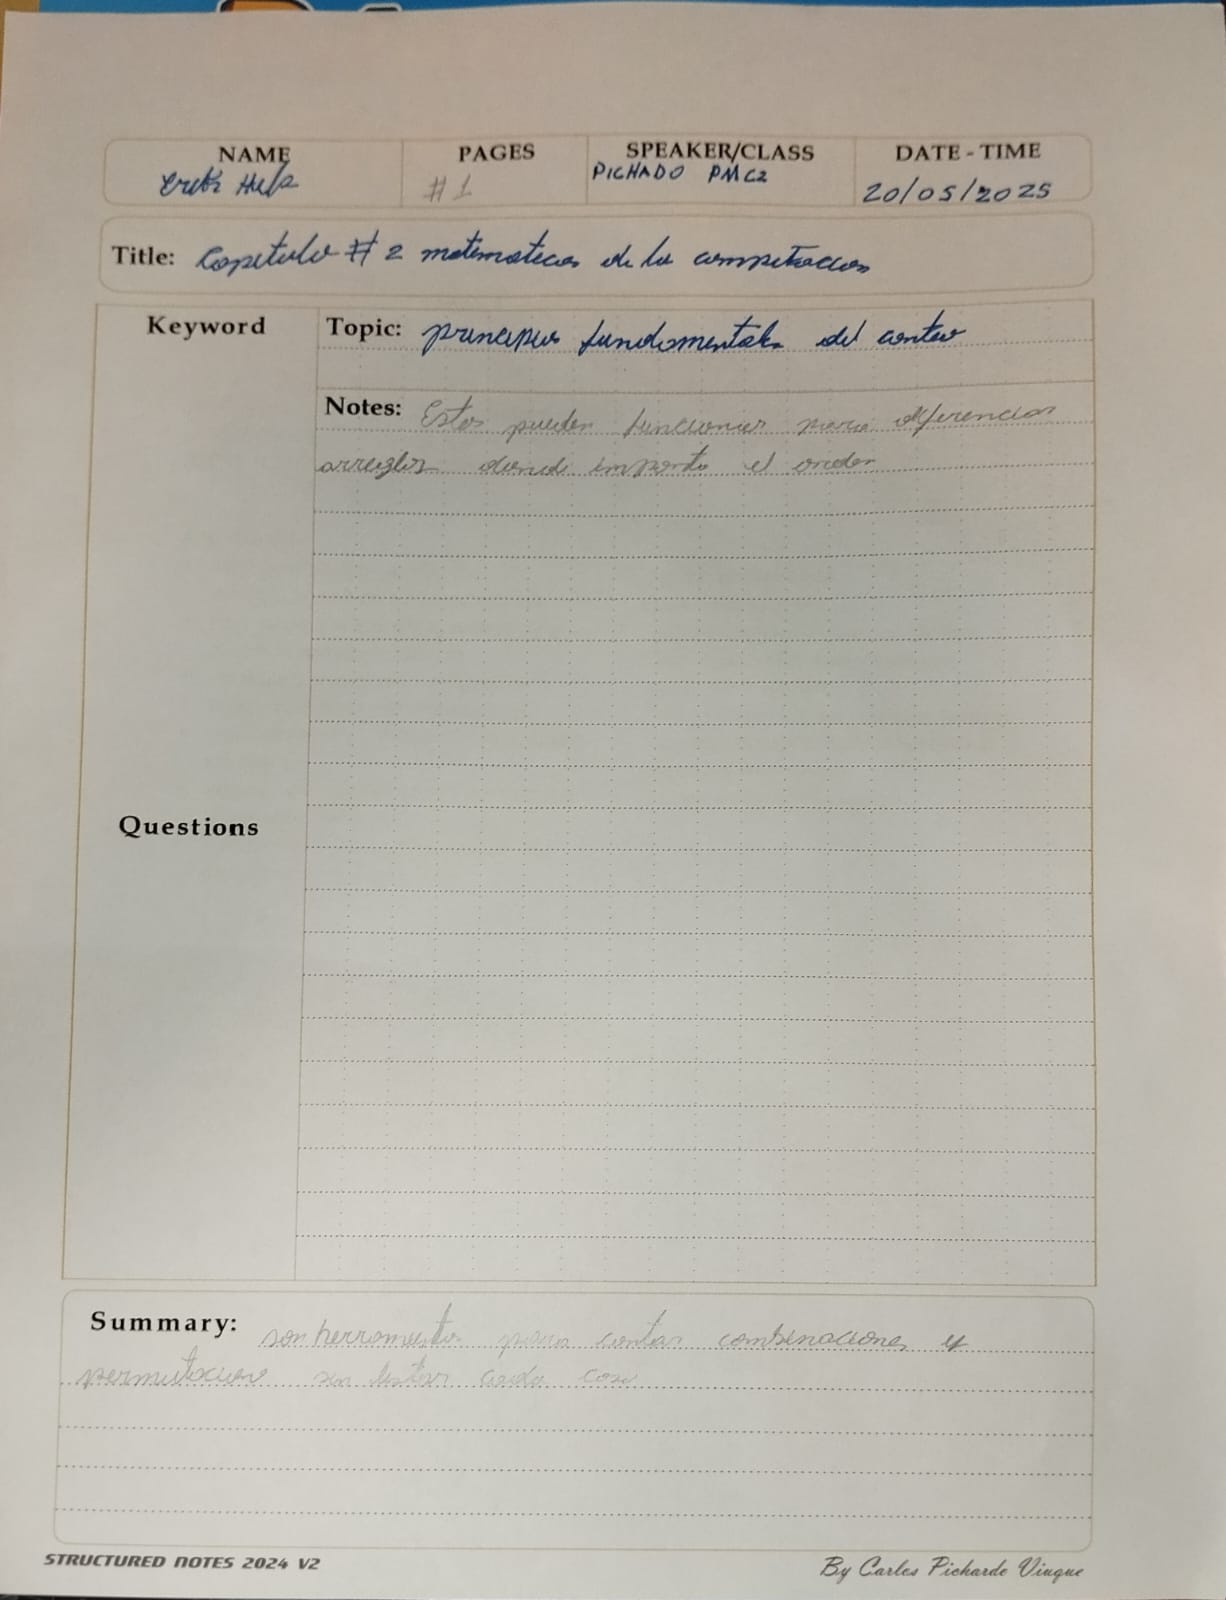 NAME PAGES SPEAKER/CLASS DATE - TIME
#1 PICHADO PMC2 20/05/2025
Title: Capitulo # 2 matematicas de la computacion
Keyword
Topic: principios fundamentales del conteo
Notes: Estos pueden funcionar para diferenciar
arreglos donde importa el orden
Questions
Summary: son herramientas para contar combinaciones y
permutaciones sin listar cada caso
STRUCTURED NOTES 2024 V2
By Carlos Pichardo Viuque